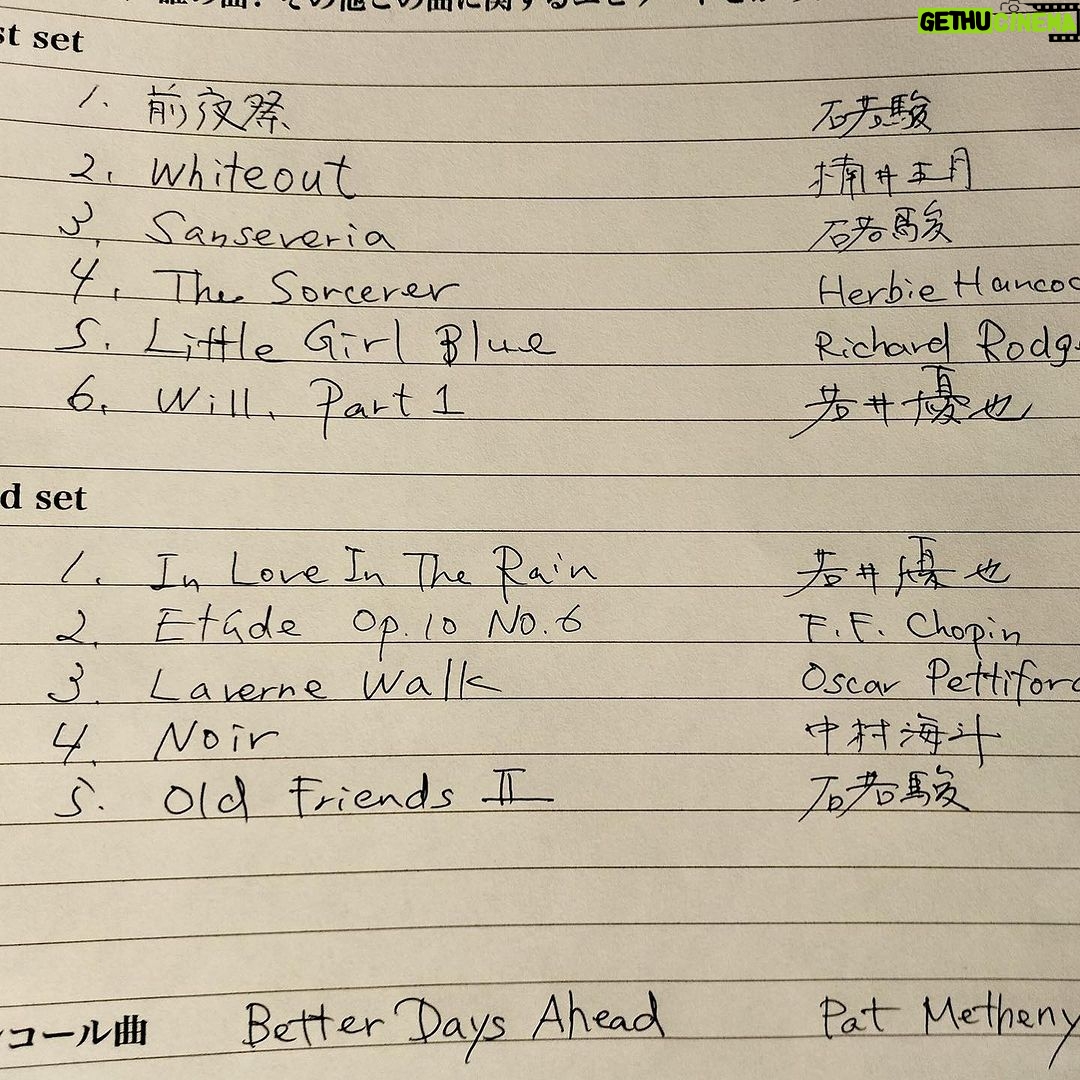 st set
1. 前夜祭 石若駿
2. Whiteout 楠井五月
3. Sanseveria 石若駿
4. The Sorcerer Herbie Hancoc
5. Little Girl Blue Richard Rodg
6. Will, Part 1 若井優也
d set
1. In Love In The Rain 若井優也
2. Etúde Op.10 No.6 F.F. Chopin
3. Laverne Walk Oscar Pettiford
4. Noir 中村海斗
5. Old Friends II 石若駿
コール曲 Better Days Ahead Pat Metheny
GETHUCINEMA